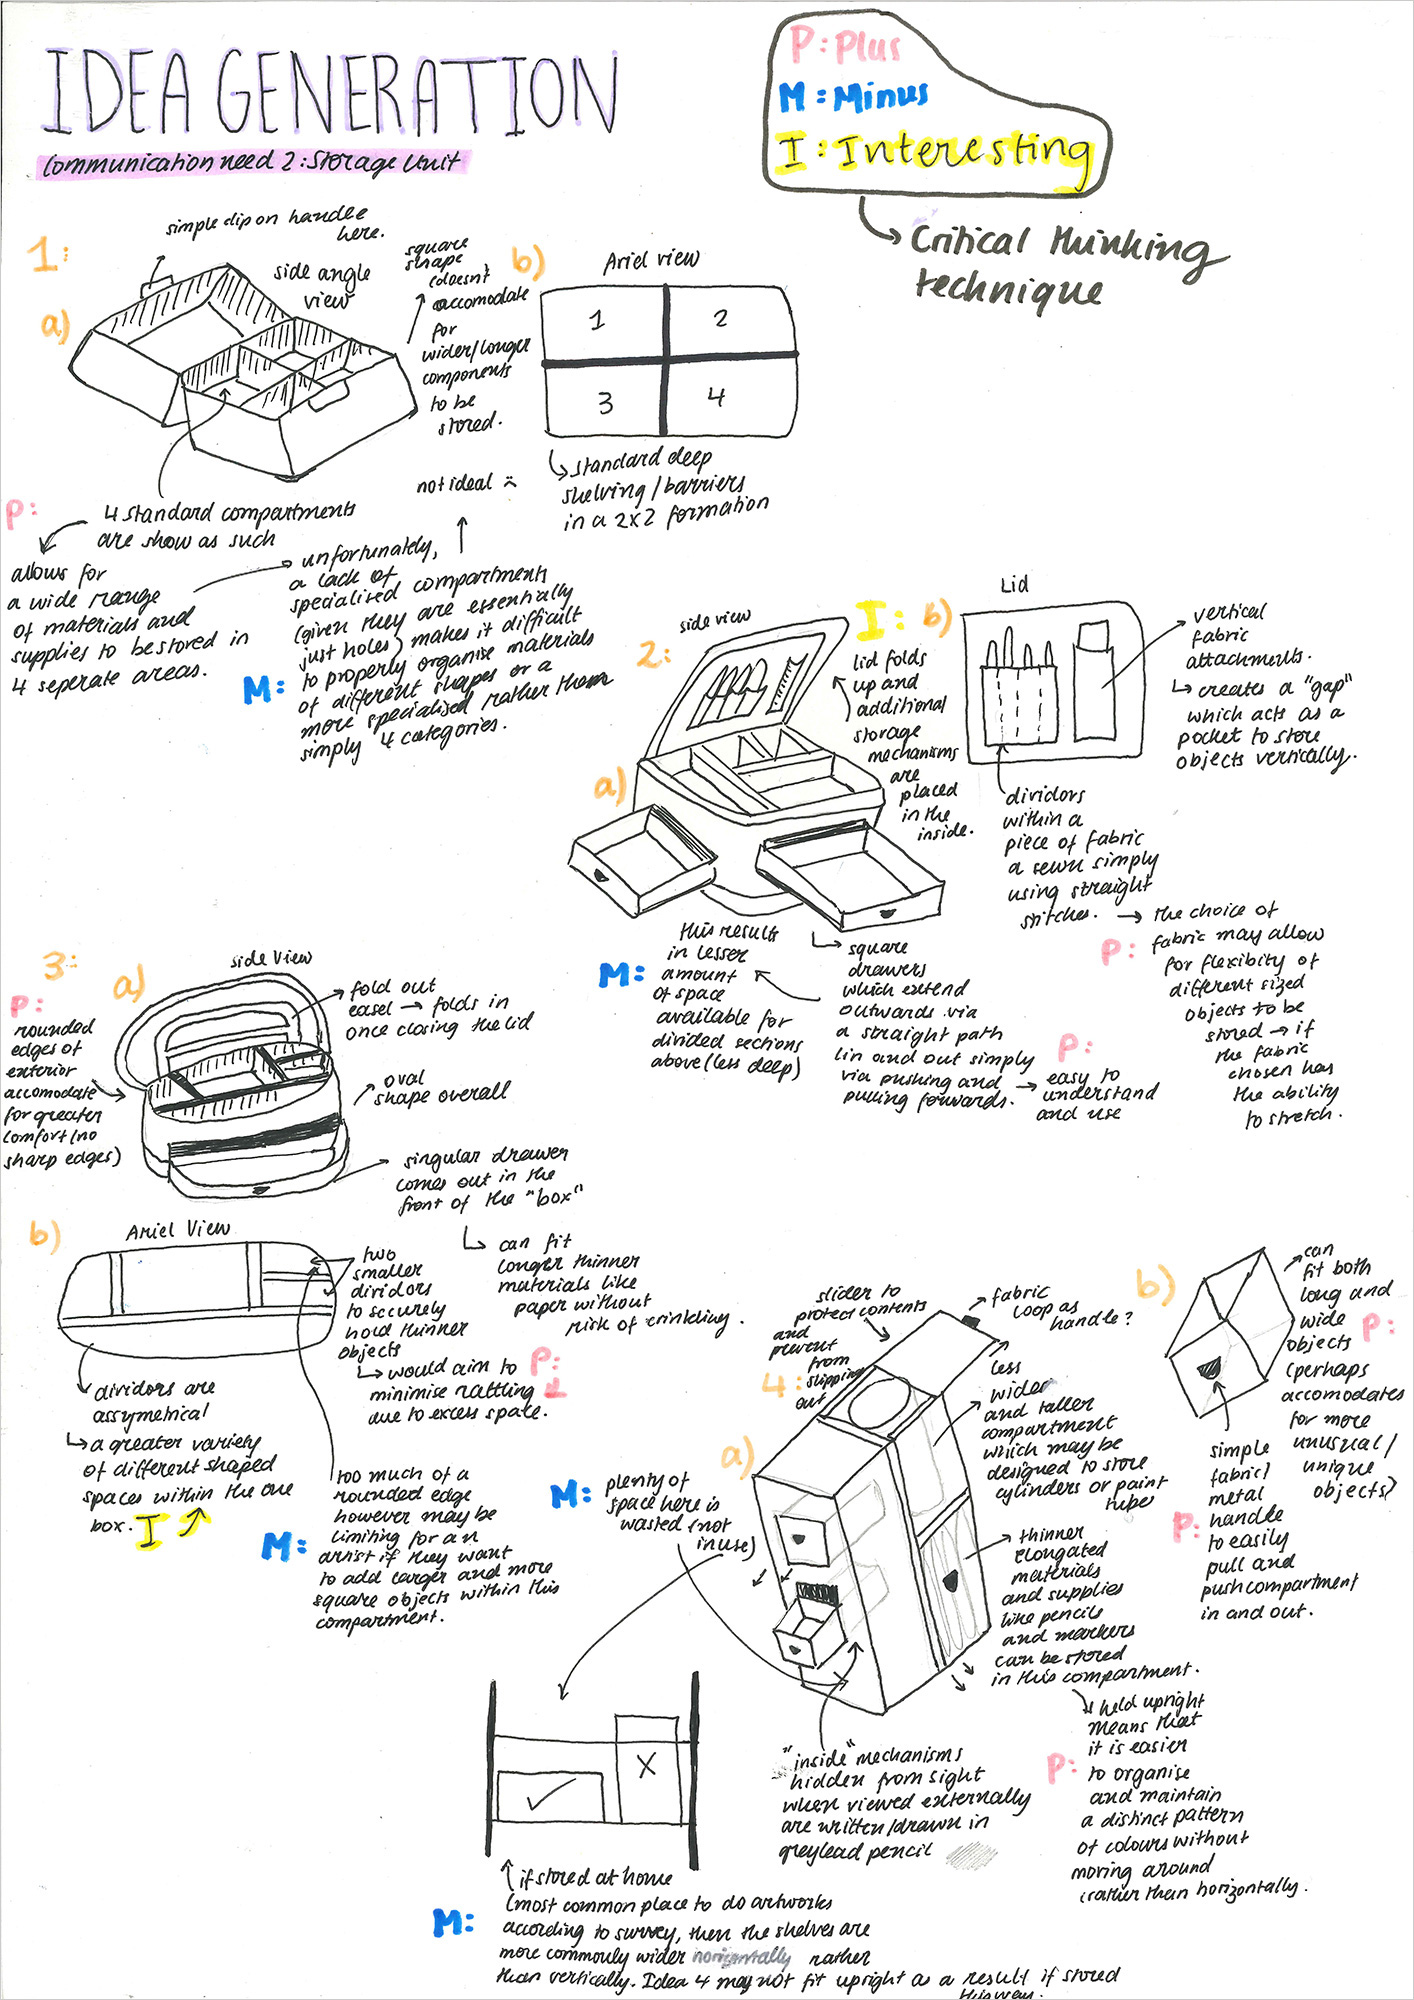 IDEA GENERATION
Communication need 2: Storage Unit
P: Plus
M: Minus
I: Interesting
Critical thinking
technique
1:
simple clip on handle
here.
a)
side angle
view
square
shape
(doesn't
accomodate
for
wider/longer
components
to be
stored.
not ideal :(
b)
Ariel view
1
2
3
4
standard deep
shelving/barriers
in a 2x2 formation
P:
4 standard compartments
are show as such
allows for
a wide range
of materials and
supplies to be stored in
4 seperate areas.
M:
unfortunately,
a lack of
specialised compartments
(given they are essentially
just holes) makes it difficult
to properly organise materials
of different shapes or a
more specialised rather them
simply 4 categories.
2:
side view
a)
I:
lid folds
up and
additional
storage
mechanisms
are
placed
in the
inside.
b)
Lid
vertical
fabric
attachments.
creates a "gap"
which acts as a
pocket to store
objects vertically.
dividors
within a
piece of fabric
a sewn simply
using straight
stitches.
P:
the choice of
fabric may allow
for flexibity of
different sized
objects to be
stored → if
the fabric
chosen has
the ability
to stretch.
M:
this results
in lesser
amount
of space
available for
divided sections
above (less deep)
square
drawers
which extend
outwards via
a straight path
(in and out simply
via pushing and
pulling forwards.
P:
easy to
understand
and use
3:
a)
side view
P:
rounded
edges of
exterior
accomodate
for greater
comfort (no
sharp edges)
fold out
easel → folds in
once closing the lid
oval
shape overall
singular drawer
comes out in the
front of the "box"
can fit
longer thinner
materials like
paper without
risk of crinkling.
b)
Ariel View
two
smaller
dividors
to securely
hold thinner
objects
would aim to
minimise rattling
due to excess space.
P:
dividors are
assymetrical
a greater variety
of different shaped
spaces within the one
box.
I
M:
too much of a
rounded edge
however may be
limiting for an
artist if they want
to add larger and more
square objects within this
compartment.
4:
slider to
protect contents
and
prevent
from
slipping
out
a)
fabric
loop as
handle?
less
wider
and taller
compartment
which may be
designed to store
cylinders or paint
tubes
thinner
elongated
materials
and supplies
like pencils
and markers
can be stored
in this compartment.
P:
held upright
means that
it is easier
to organise
and maintain
a distinct pattern
of colours without
moving around
(rather than horizontally.
M:
plenty of
space here is
wasted (not
in use)
"inside" mechanisms
hidden from sight
when viewed externally
are written/drawn in
greylead pencil
b)
can
fit both
long and
wide
objects
(perhaps
accomodates
for more
unusual/
unique
objects?
P:
P:
simple
fabric/
metal
handle
to easily
pull and
push compartment
in and out.
X
M:
if stored at home
(most common place to do artworks
according to survey, then the shelves are
more commonly wider horizontally rather
than vertically. Idea 4 may not fit upright as a result if stored
this way.